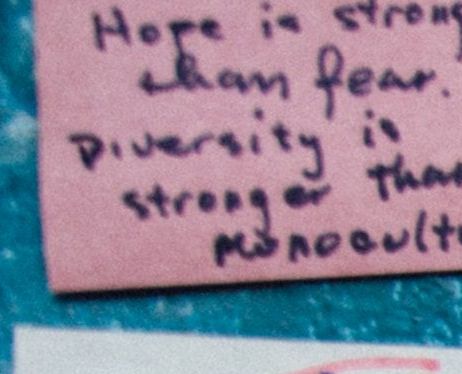 Hope is strong
than fear.
Diversity is
stronger than
monocult